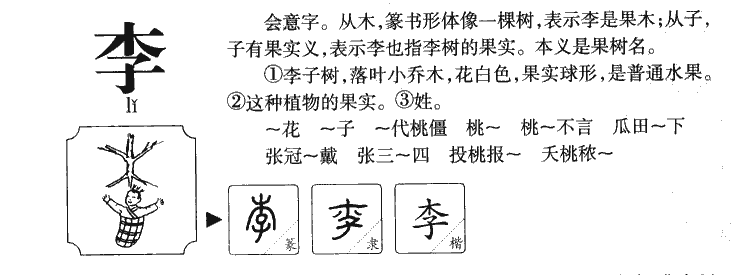 李
lǐ
会意字。从木，篆书形体像一棵树，表示李是果木；从子，
子有果实义，表示李也指李树的果实。本义是果树名。
①李子树，落叶小乔木，花白色，果实球形，是普通水果。
②这种植物的果实。③姓。
～花　～子　～代桃僵　桃～　桃～不言　瓜田～下
张冠～戴　张三～四　投桃报～　夭桃秾～
李 篆
李 隶
李 楷